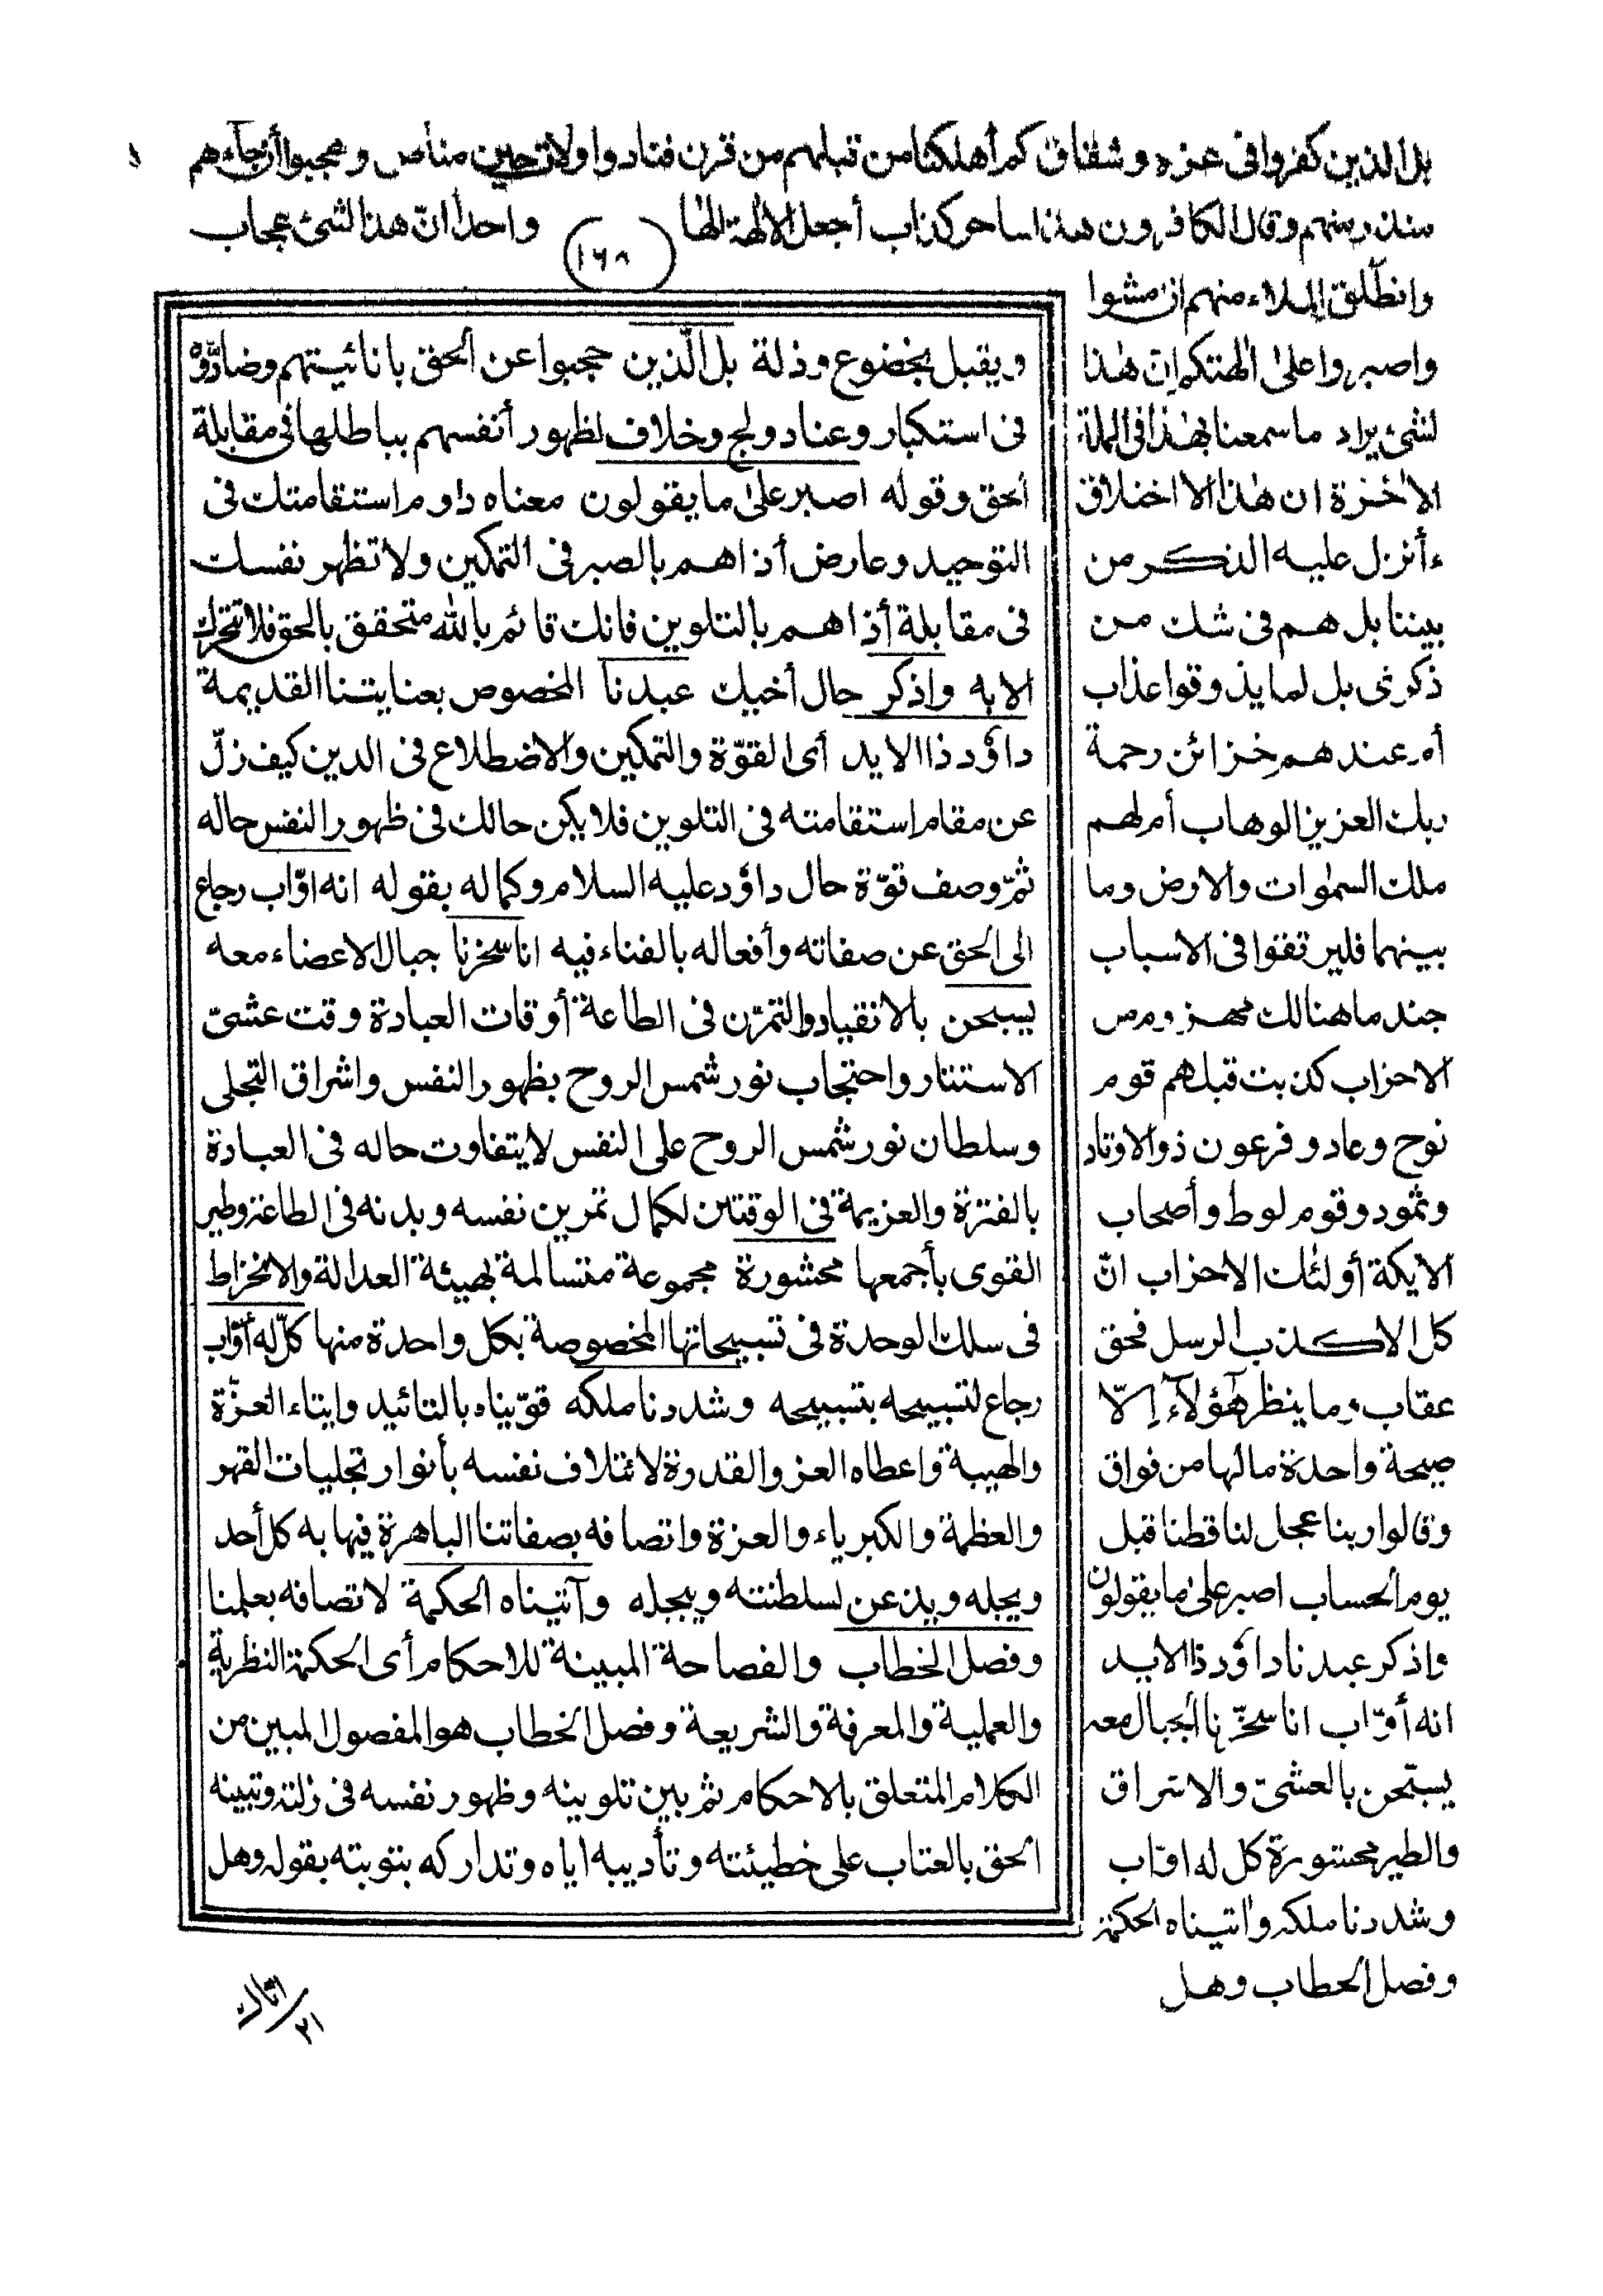 بل الذين كفروا فى عزة وشقاق كم أهلكنا من قبلهم من قرن فنادوا ولات حين مناص وعجبوا أن جاءهم
منذر منهم وقال الكافرون هذا ساحر كذاب أجعل الالهة الها واحدا انّ هذا لشئ عجاب
١٦٨
وانطلق الملاء منهم ان مشوا
واصبروا على الهتكم ان هذا
لشئ يراد ما سمعنا بهذا فى الملة
الاخرة ان هذا الا اختلاق
ءأنزل عليه الذكر من
بيننا بل هم فى شك من
ذكرى بل لما يذوقوا عذاب
أم عندهم خزائن رحمة
ربك العزيز الوهاب أم لهم
ملك السموات والارض وما
بينهما فليرتقوا فى الاسباب
جند ما هنالك مهزوم من
الاحزاب كذبت قبلهم قوم
نوح وعاد وفرعون ذو الاوتاد
وثمود وقوم لوط وأصحاب
الايكة أولئك الاحزاب انّ
كل الا كذب الرسل فحق
عقاب وما ينظر هؤلاء إلّا
صيحة واحدة ما لها من فواق
وقالوا ربنا عجل لنا قطنا قبل
يوم الحساب اصبر على ما يقولون
واذكر عبدنا داؤد ذا الايد
انه أوّاب انا سخّرنا الجبال معه
يسبّحن بالعشىّ والاشراق
والطير محشورة كل له اوّاب
وشددنا ملكه واتيناه الحكمة
وفصل الخطاب وهل
ويقبل بخضوع وذلة بل الّذين حجبوا عن الحق بانائيتهم وضادّوه
فى استكبار وعناد ولج وخلاف لظهور أنفسهم بباطلها فى مقابلة
الحق وقوله اصبر على ما يقولون معناه داوم استقامتك فى
التوحيد وعارض أذاهم بالصبر فى التمكين ولا تظهر نفسك
فى مقابلة أذاهم بالتلوين فانك قائم بالله متحقق بالحق فلا تتحرك
الا به واذكر حال أخيك عبدنا المخصوص بعنايتنا القديمة
داؤد ذا الايد أى القوّة والتمكين والاضطلاع فى الدين كيف زلّ
عن مقام استقامته فى التلوين فلا يكن حالك فى ظهور النفس حاله
ثمّ وصف قوّة حال داؤد عليه السلام وكماله بقوله انه اوّاب رجاع
الى الحق عن صفاته وأفعاله بالفناء فيه انا سخرنا جبال الاعضاء معه
يسبحن بالانقياد والتمرّن فى الطاعة أوقات العبادة وقت عشىّ
الاستتار واحتجاب نور شمس الروح بظهور النفس واشراق التجلى
وسلطان نور شمس الروح على النفس لا يتفاوت حاله فى العبادة
بالفترة والعزيمة فى الوقتين لكمال تمرين نفسه وبدنه فى الطاعة وطير
القوى بأجمعها محشورة مجموعة متسالمة بهيئة العدالة والانخراط
فى سلك الوحدة فى تسبيحاتها المخصوصة بكل واحدة منها كلّ له أوّاب
رجاع لتسبيحه بتسبيحه وشددنا ملكه قوّيناه بالتائيد وايتاء العزّة
والهيبة واعطاه العز والقدرة لائتلاف نفسه بأنوار تجليات القهر
والعظمة والكبرياء والعزة واتصافه بصفاتنا الباهرة فيهابه كل أحد
ويجله ويذعن لسلطنته ويبجله وآتيناه الحكمة لاتصافه بعلمنا
وفصل الخطاب والفصاحة المبينة للاحكام أى الحكمة النظرية
والعملية والمعرفة والشريعة وفصل الخطاب هو المفصول المبين من
الكلام المتعلق بالاحكام ثم بين تلوينه وظهور نفسه فى زلته وتبينه
الحق بالعتاب على خطيئته وتأديبه اياه وتداركه بتوبته بقوله وهل
٢١